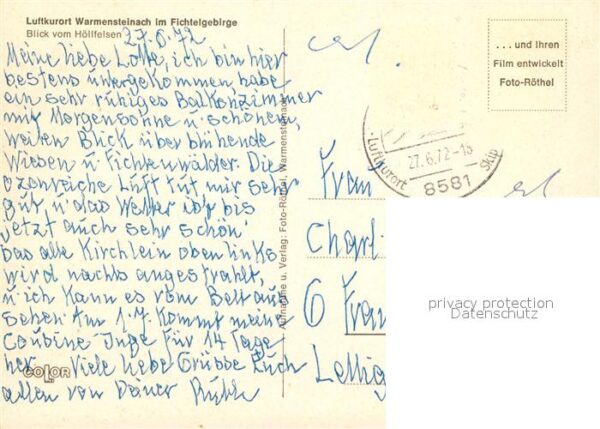 Luftkurort Warmensteinach im Fichtelgebirge
Blick vom Höllfelsen
27.6.72
Meine liebe Lotte, ich bin hier
bestens untergekommen, habe
ein sehr ruhiges Balkonzimmer
mit Morgensonne u. schönen,
weiten Blick über blühende
Wiesen u. Fichtenwälder. Die
ozonreiche Luft tut mir sehr
gut u. das Wetter ist bis
jetzt auch sehr schön.
Das alte Kirchlein oben links
wird nachts angestrahlt,
u. ich kann es vom Bett aus
sehen. Am 1.7. kommt meine
Cousine Inge für 14 Tage
her. Viele liebe Grüsse Euch
allen von Deiner
COLOR
Aufnahme u. Verlag: Foto-Röthel, Warmensteinach
... und Ihren
Film entwickelt
Foto-Röthel
Luftkurort
27.6.72-18
Skip
8581
Frau
Charl
6 Fran
privacy protection
Datenschutz